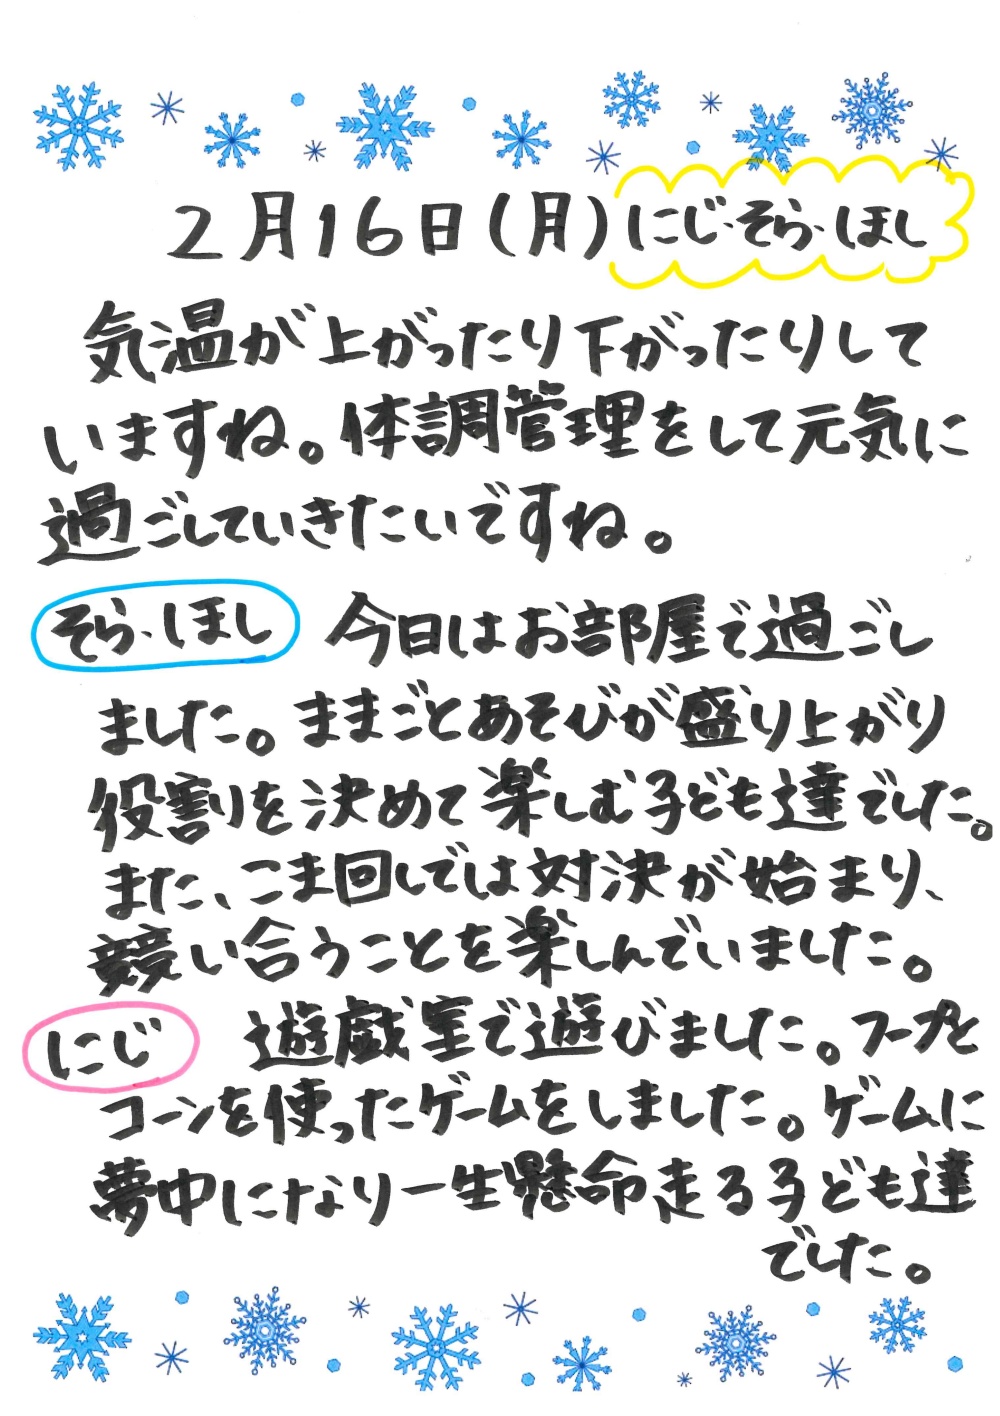 2月16日(月) にじ・そら・ほし
気温が上がったり下がったりして
いますね。体調管理をして元気に
過ごしていきたいですね。
そら・ほし 今日はお部屋で過ごし
ました。ままごとあそびが盛り上がり
役割を決めて楽しむ子ども達でした。
また、こま回しでは対決が始まり、
競い合うことを楽しんでいました。
にじ 遊戯室で遊びました。フープと
コーンを使ったゲームをしました。ゲームに
夢中になり一生懸命走る子ども達
でした。